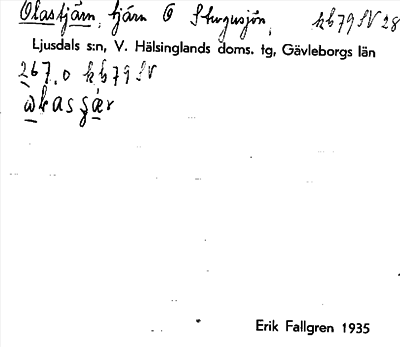 Olastjärn, tjärn Ö Skogssjön, kb79SV28
Ljusdals s:n, V. Hälsinglands doms. tg, Gävleborgs län
267.0 kb79SV
Erik Fallgren 1935